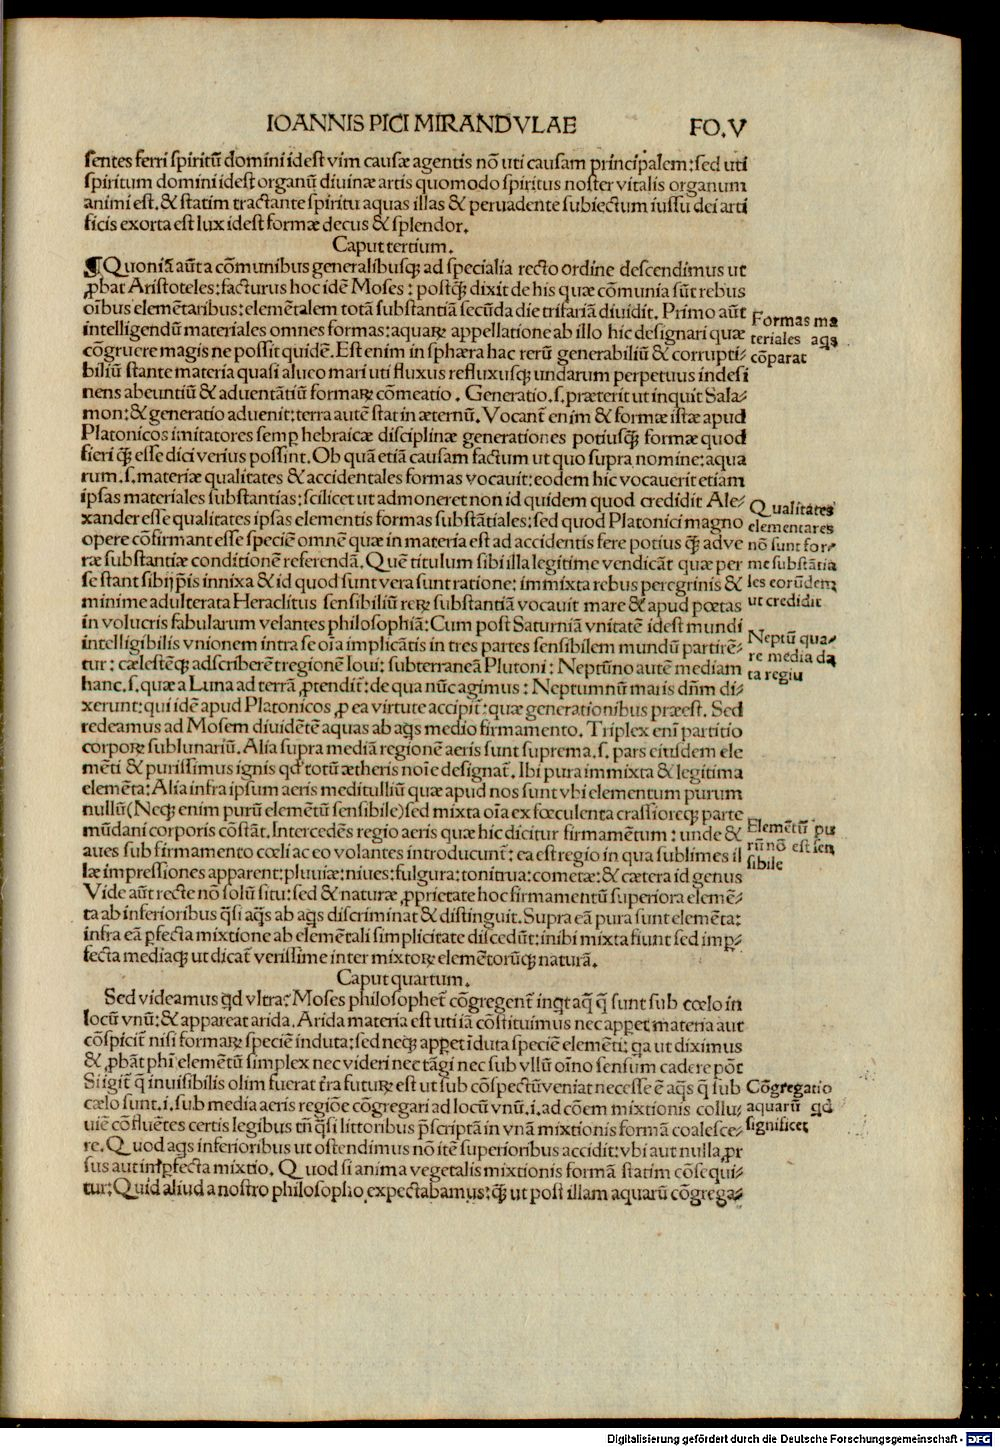 IOANNIS PICI MIRANDVLAE FO.V
sentes ferri spiritū domini idest vim causæ agentis nō uti causam principalem: sed uti
spiritum domini idest organū diuinæ artis quomodo spiritus noster vitalis organum
animi est. & statim tractante spiritu aquas illas & peruadente subiectum iussu dei arti
ficis exorta est lux idest formæ decus & splendor.
Caput tertium.
¶Quoniā aūt a cōmunibus generalibusq; ad specialia recto ordine descendimus ut
ꝓbat Aristoteles: facturus hoc idē Moses: postq̃; dixit de his quæ cōmunia sūt rebus
oībus elemētaribus: elemētalem totā substantiā secūda die trifariā diuidit. Primo aūt
intelligendū materiales omnes formas: aquaꝝ appellatione ab illo hic designari quæ
cōgruere magis ne possit quidē. Est enim in sphæra hac rerū generabiliū & corrupti⸗
biliū stante materia quasi alueo mari uti fluxus refluxusq; undarum perpetuus indesi
nens abeuntiū & aduentātiū formaꝝ cōmeatio. Generatio.s. præterit ut inquit Sala⸗
mon: & generatio aduenit: terra autē stat in æternū. Vocant̄ enim & formæ istæ apud
Platonicos imitatores semꝑ hebraicæ disciplinæ generationes potiusq̃; formæ quod
fieri q̃; esse dici verius possint. Ob quā etiā causam factum ut quo supra nomine: aqua
rum.s. materiæ qualitates & accidentales formas vocauit: eodem hic vocauerit etiam
ipsas materiales substantias: scilicet ut admoneret non id quidem quod credidit Ale⸗
xander esse qualitates ipsas elementis formas substātiales: sed quod Platonici magno
opere cōfirmant esse speciē omnē quæ in materia est ad accidentis fere potius q̃; ad ve
ræ substantiæ conditionē referendā. Quē titulum sibi illa legitime vendicāt quæ per
se stant sibijp̄is innixa & id quod sunt vera sunt ratione: immixta rebus peregrinis &
minime adulterata Heraclitus sensibiliū reꝝ substantiā vocauit mare & apud poetas
in volucris fabularum velantes philosophiā: Cum post Saturniā vnitatē idest mundi
intelligibilis vnionem intra se oīa implicātis in tres partes sensibilem mundū partirē⸗
tur: cælestēq; adscriberēt regionē Ioui: subterraneā Plutoni: Neptūno autē mediam
hanc.s. quæ a Luna ad terrā ꝓtendit̄: de qua nūc agimus: Neptumnū maris dn̄m di⸗
xerunt: qui idē apud Platonicos ꝓ ea virtute accipit̄: quæ generationibus præest. Sed
redeamus ad Mosem diuidētē aquas ab aq̄s medio firmamento. Triplex eni partitio
corpoꝝ sublunariū. Alia supra mediā regionē aeris sunt suprema.s. pars eiusdem ele
mēti & purissimus ignis qd̄ totū ætheris noīe designat̄. Ibi pura immixta & legitima
elemēta: Alia infra ipsum aeris meditulliū quæ apud nos sunt vbi elementum purum
nullū (Neq; enim purū elemētū sensibile) sed mixta oīa ex fœculenta crassioreq; parte
mūdani corporis cōstāt. Intercedēs regio aeris quæ hic dicitur firmamētum: unde &
aues sub firmamento cœli ac eo volantes introducunt̄: ea est regio in qua sublimes il
læ impressiones apparent: pluuiæ: niues: fulgura: tonitrua: cometæ: & cætera id genus
Vide aūt recte nō solū situ: sed & naturæ ꝓprietate hoc firmamentū superiora elemē⸗
ta ab inferioribus q̄si aq̄s ab aq̄s discriminat & distinguit. Supra eā pura sunt elemēta:
infra eā ꝑfecta mixtione ab elemētali simplicitate discedūt: inibi mixta fiunt sed imꝑ⸗
fecta mediaq; ut dicat̄ verissime inter mixtoꝝ elemētorūq; naturā.
Caput quartum.
Sed videamus qd vltra: Moses philosophet̄ cōgregent̄ inqt aq̄ q̄ sunt sub cœlo in
locū vnū: & appareat arida. Arida materia est uti iā cōstituimus nec appet materia aut
cōspicit̄ nisi formaꝝ speciē induta: sed neq; appet īduta speciē elemēti: qa ut diximus
& ꝓbāt phī elemētū simplex nec videri nec tāgi nec sub vllū oīno sensum cadere pōt
Si igit̄ q̄ inuisibilis olim fuerat t̄ra futuꝝ est ut sub cōspectū veniat necesse ē aq̄s q̄ sub
cælo sunt.i. sub media aeris regiōe cōgregari ad locū vnū.i. ad cōem mixtionis collu⸗
uiē cōfluētes certis legibus tn̄ q̄si littoribus p̄scriptā in vnā mixtionis formā coalesce⸗
re. Quod aq̄s inferioribus ut ostendimus nō itē superioribus accidit: vbi aut nulla ꝓr
sus aut inꝑfecta mixtio. Quod si anima vegetalis mixtionis formā statim cōsequi⸗
tur: Quid aliud a nostro philosopho expectabamus: q̃; ut post illam aquarū cōgrega⸗
Formas ma
teriales aq̄s
cōparat
Qualitates
elementares
nō sunt for⸗
mæ substātia
les eorūdem
ut credidit
Neptū qua⸗
re media da
ta regiu
Elemētū pu
rū nō est sen
sibile
Cōgregatio
aquarū qd
significet
Digitalisierung gefördert durch die Deutsche Forschungsgemeinschaft - DFG